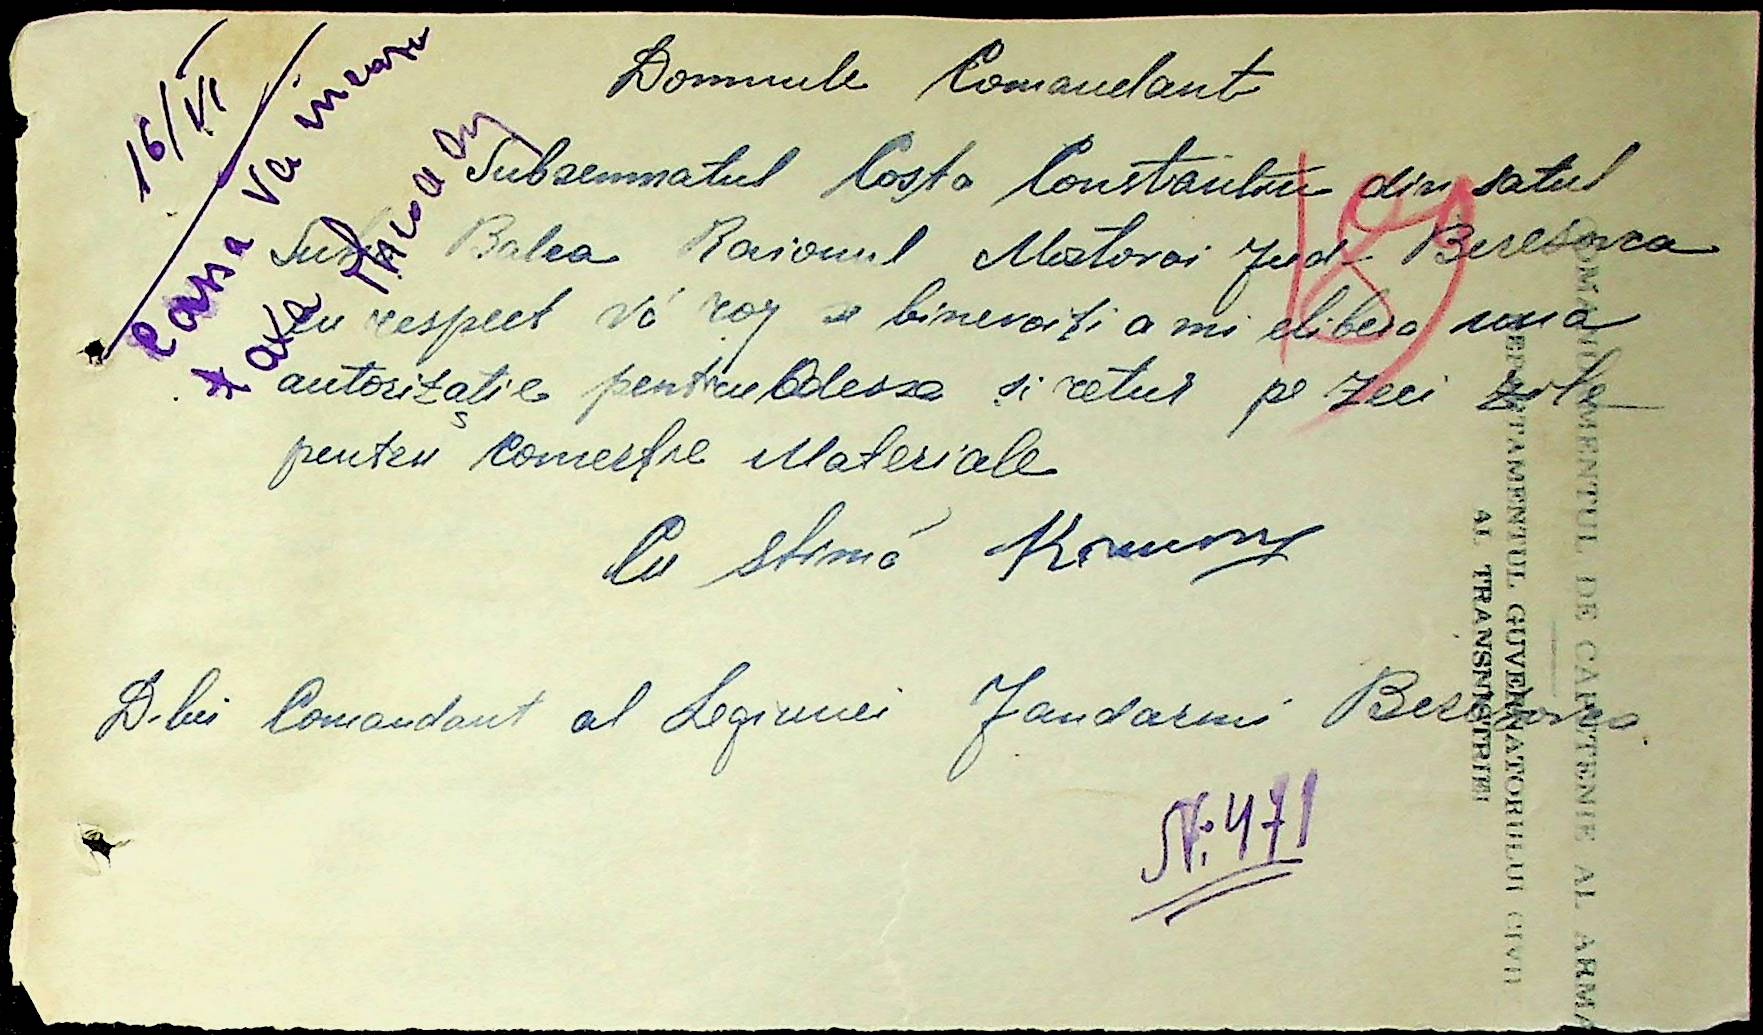 16/VI
Casa va incasa
taxa
Domnule Comandant
Subsemnatul Costa Constantin din satul
Balca Raionul Mostovoi Jud. Beresovca
cu respect vă rog se binevoiți a mi elibera una
autorizație pentru Odessa si retur pe zeci zile
pentru Materiale
Cu stimă
D-lui Comandant al Legiunei Jandarmi Beresovca
189
N: 471
COMANDAMENTUL DE CAPETENIE AL ARMA
DEPARTAMENTUL GUVERNATORULUI CIVIL
AL TRANSNISTRIEI